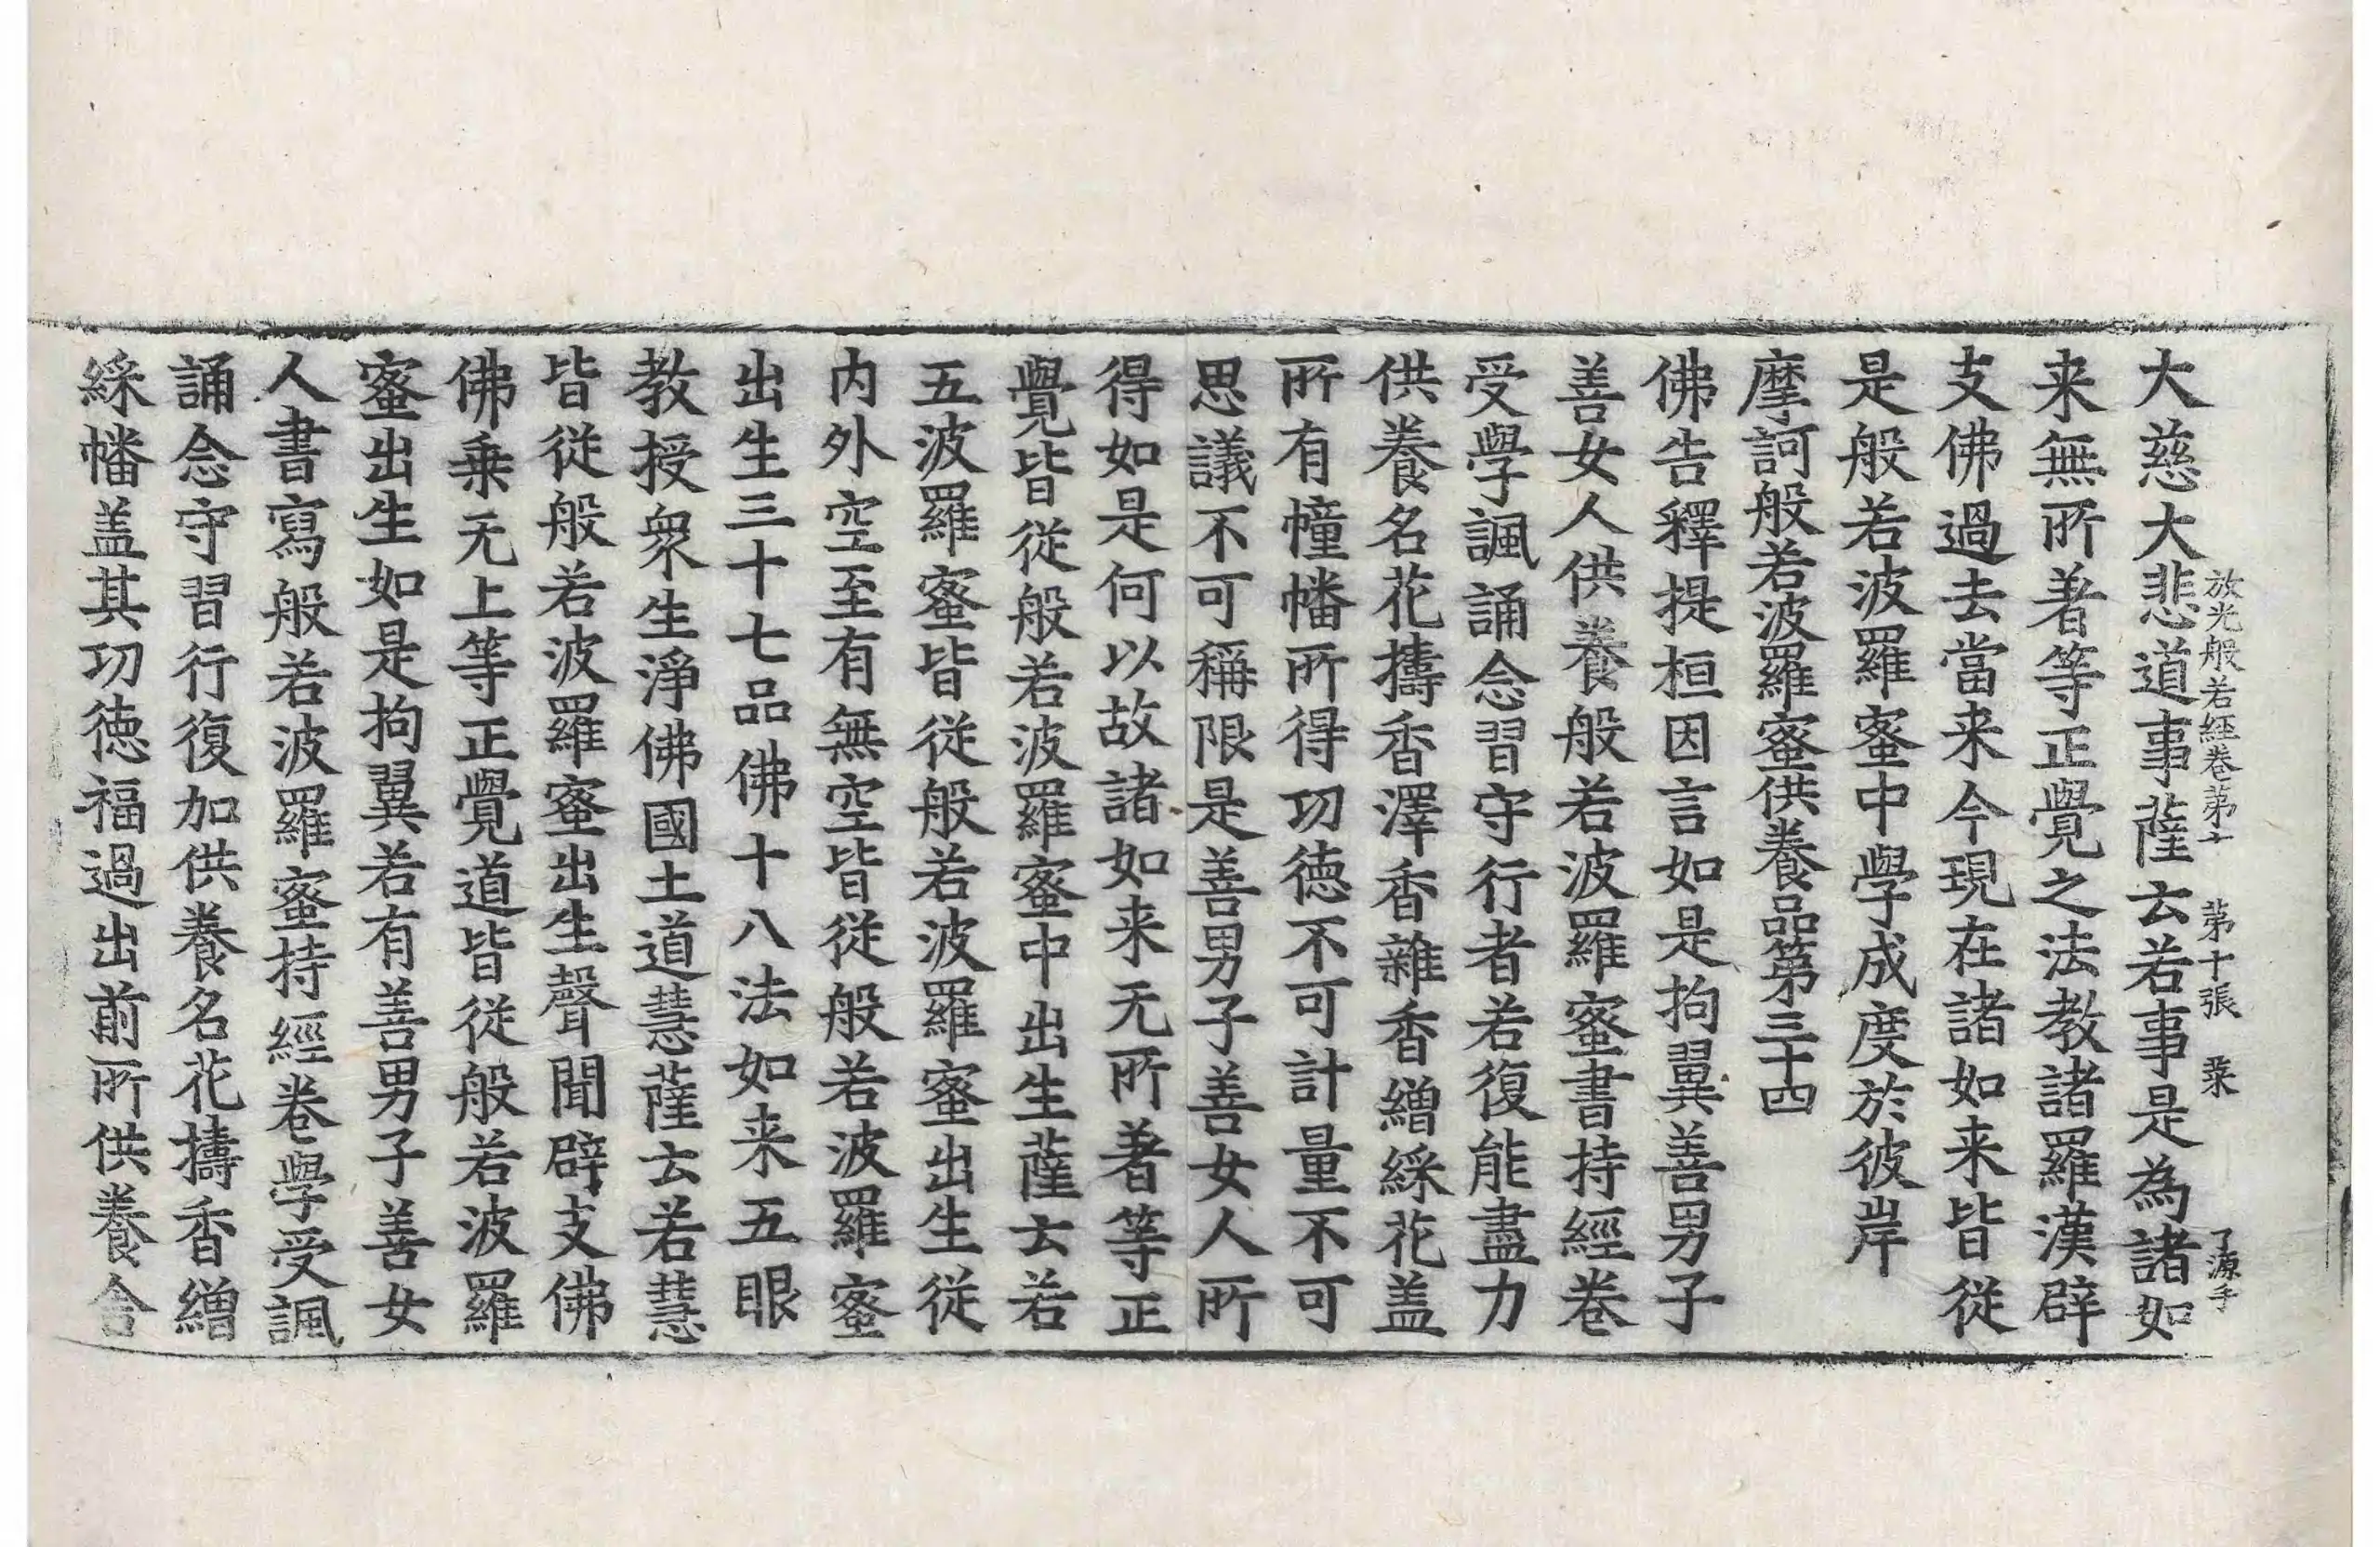 放光般若經卷第七 第十張 菜 了源手
大慈大悲道事薩云若事是為諸如
来無所著等正覺之法教諸羅漢辟
支佛過去當来今現在諸如来皆從
是般若波羅蜜中學成度於彼岸
摩訶般若波羅蜜供養品第三十四
佛告釋提桓因言如是拘翼善男子
善女人供養般若波羅蜜書持經卷
受學諷誦念習守行者若復能盡力
供養名花擣香澤香雜香繒綵花盖
所有幢幡所得功徳不可計量不可
思議不可稱限是善男子善女人所
得如是何以故諸如来无所著等正
覺皆從般若波羅蜜中出生薩云若
五波羅蜜皆從般若波羅蜜出生從
内外空至有無空皆從般若波羅蜜
出生三十七品佛十八法如来五眼
教授衆生淨佛國土道慧薩云若慧
皆從般若波羅蜜出生聲聞辟支佛
佛乗无上等正覺道皆從般若波羅
蜜出生如是拘翼若有善男子善女
人書寫般若波羅蜜持經卷學受諷
誦念守習行復加供養名花擣香繒
綵幡盖其功徳福過出前所供養舍